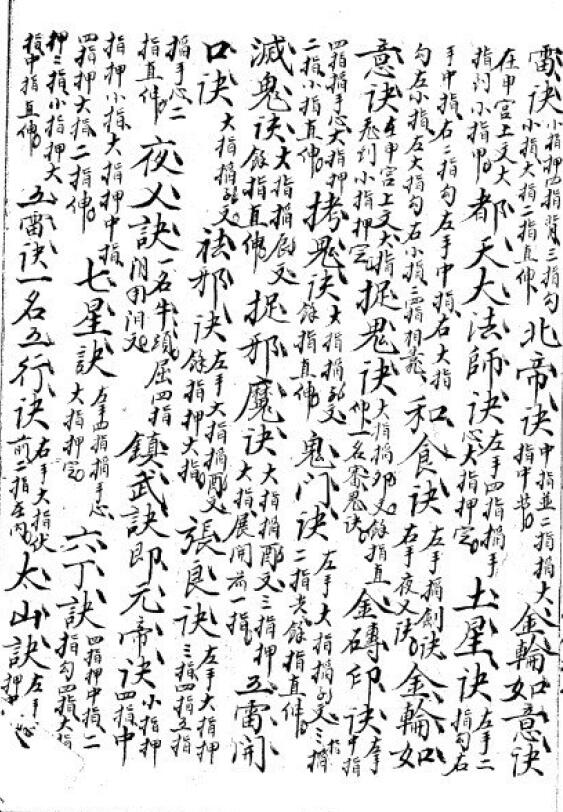 雷诀小指押四指背三指勾小指大指二指直伸北帝诀中指並二指搯大指中节金輪如意诀
在申宫上文大指到小指甲都天大法師诀左手四指搯手心大指押定土星诀左手二指勾右
手中指右二指勾左手中指右大指勾左小指左大指勾右小指二四指相靠和食诀左手搯劍诀右手夜乂诀金輪如
意诀在申宫上文大指飛到小指押定捉鬼诀大指搯卯文餘指直伸一名寨鬼诀金磚印诀左手中指
四指搯手心大指押二指小指直伸拷鬼诀大指搯卯文餘指直伸鬼门诀左手大指搯卯文三指二指尖餘指直伸
滅鬼诀大指搯辰文餘指直伸捉邪魔诀大指搯酉文三指押大指展開前一指五雷開
口诀大指搯卯文祛邪诀左手大指搯酉文餘指押大指張良诀左手大指押三指四指五指
搯手心二指直伸夜乂訣一名牛頭屈四指鎮武訣即元帝诀小指押四指中
指押小指大指押中指四指押大指二指伸七星訣左手四指搯手心大指押定六丁訣四指押中指二指勾四指大指
押二指小指押大指中指直伸五雷诀一名五行诀右手大指伏前二指在内太山訣左手押中